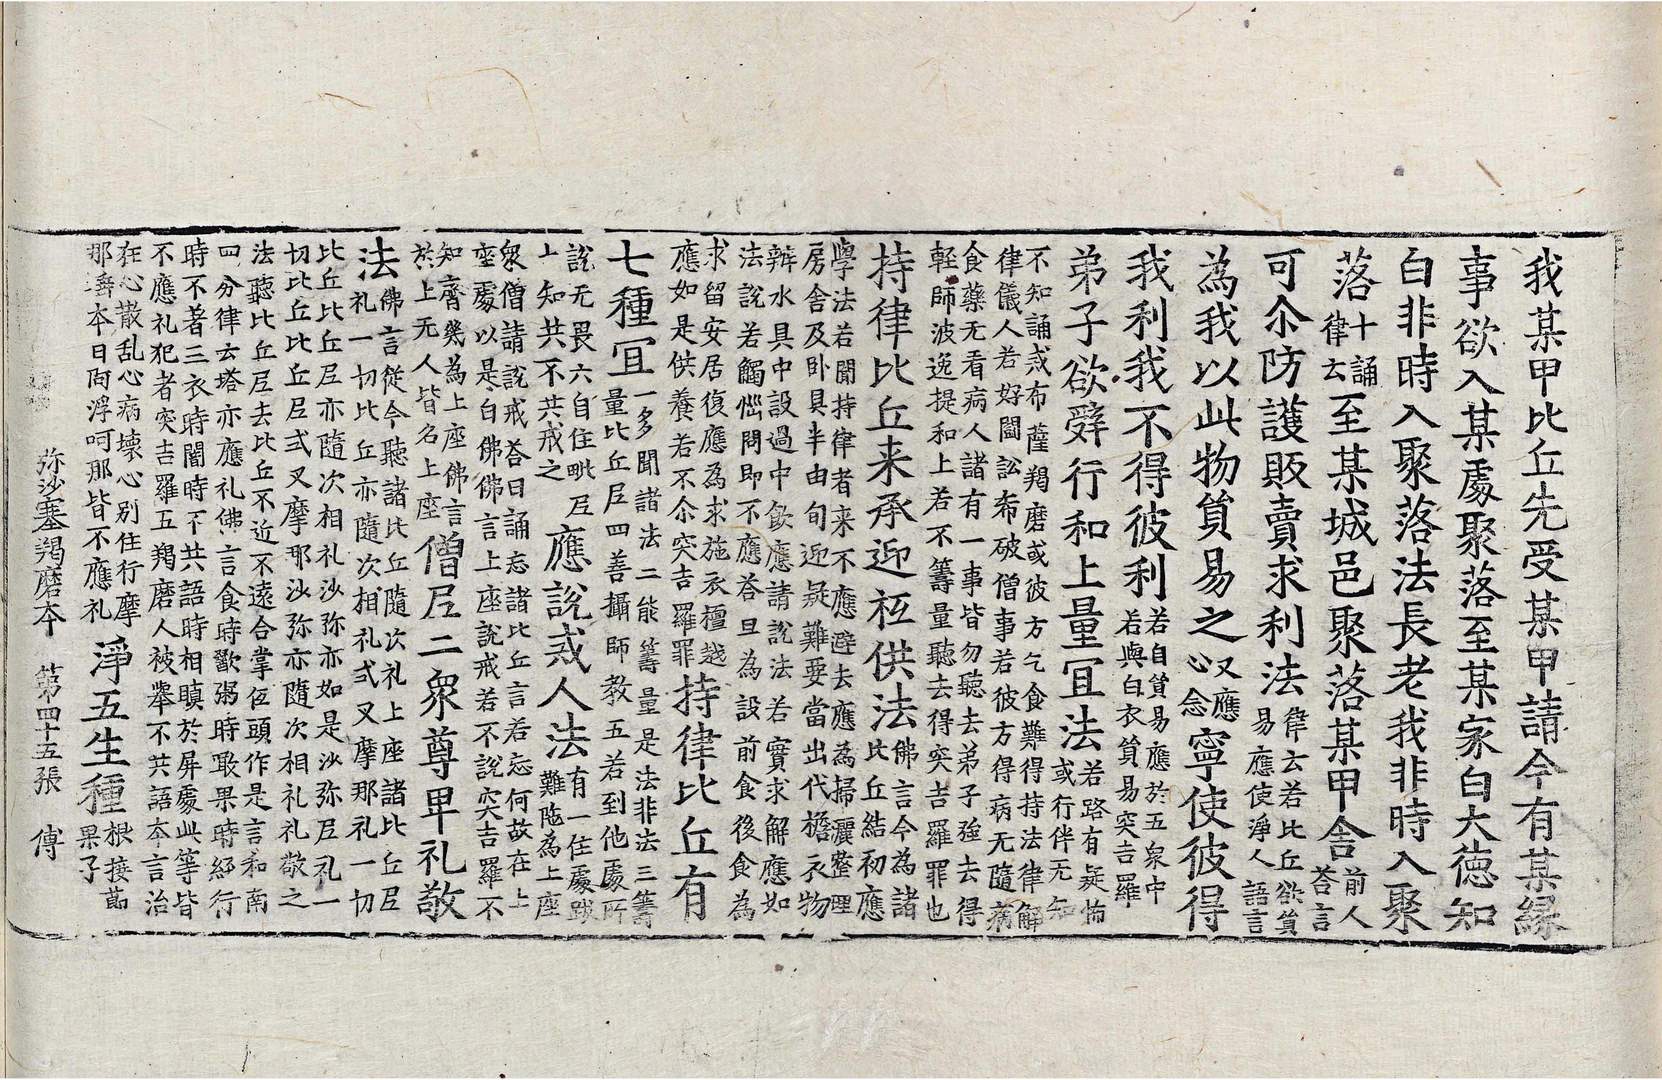 我某甲比丘先受某甲請今有某緣
事欲入某處聚落至某家白大德知
白非時入聚落法長老我非時入聚
落十誦律云至某城邑聚落某甲舍前人荅言
可尒防護販賣求利法律云若比丘欲貿易應使淨人語言
為我以此物貿易之又應心念寧使彼得
我利我不得彼利若自貿易應於五衆中若與白衣貿易突吉羅
弟子欲辤行和上量宜法若路有疑怖或行伴无知
不知誦戒布薩羯磨或彼方乞食難得持法律解律儀人若好鬪訟希破僧事若彼方得病无隨病
食藥无看病人諸有一事皆勿聽去弟子强去得輕師波逸提和上若不籌量聽去得突吉羅罪也
持律比丘来承迎秪供法佛言今為諸比丘結初應
學法若聞持律者来不應避去應為掃灑整理房舍及卧具半由旬迎疑難要當出代擔衣物
辦水具中設過中飲應請說法若實求解應如法說若觸惱問即不應荅旦為設前食後食為
求留安居復應為求施衣檀越應如是供養若不尒突吉羅罪持律比丘有
七種宜一多聞諸法二能籌量是法非法三籌量比丘尼四善攝師教五若到他處所
說无畏六自住毗尼七知共不共戒之應說戒人法有一住處跋難陁為上座
衆僧請說戒荅曰誦忘諸比丘言若忘何故在上座處以是白佛佛言上座說戒若不說突吉羅不
知齊幾為上座佛言於上无人皆名上座僧尼二衆尊卑礼敬
法佛言從今聽諸比丘隨次礼上座諸比丘尼礼一切比丘亦隨次相礼式叉摩那礼一切
比丘比丘尼亦隨次相礼沙弥亦如是沙弥尼礼一切比丘比丘尼式叉摩那沙弥亦隨次相礼礼敬之
法聽比丘尼去比丘不近不遠合掌伍頭作是言和南四分律云塔亦應礼佛言食時歠粥時噉果時經行
時不著三衣時闇時不共語時相瞋於屏處此等皆不應礼犯者突吉羅五羯磨人被舉不共語夲言治
在心散乱心病壞心別住行摩那埵夲日阿浮呵那皆不應礼淨五生種根接莭果子
弥沙塞羯磨夲 第四十五張 傅